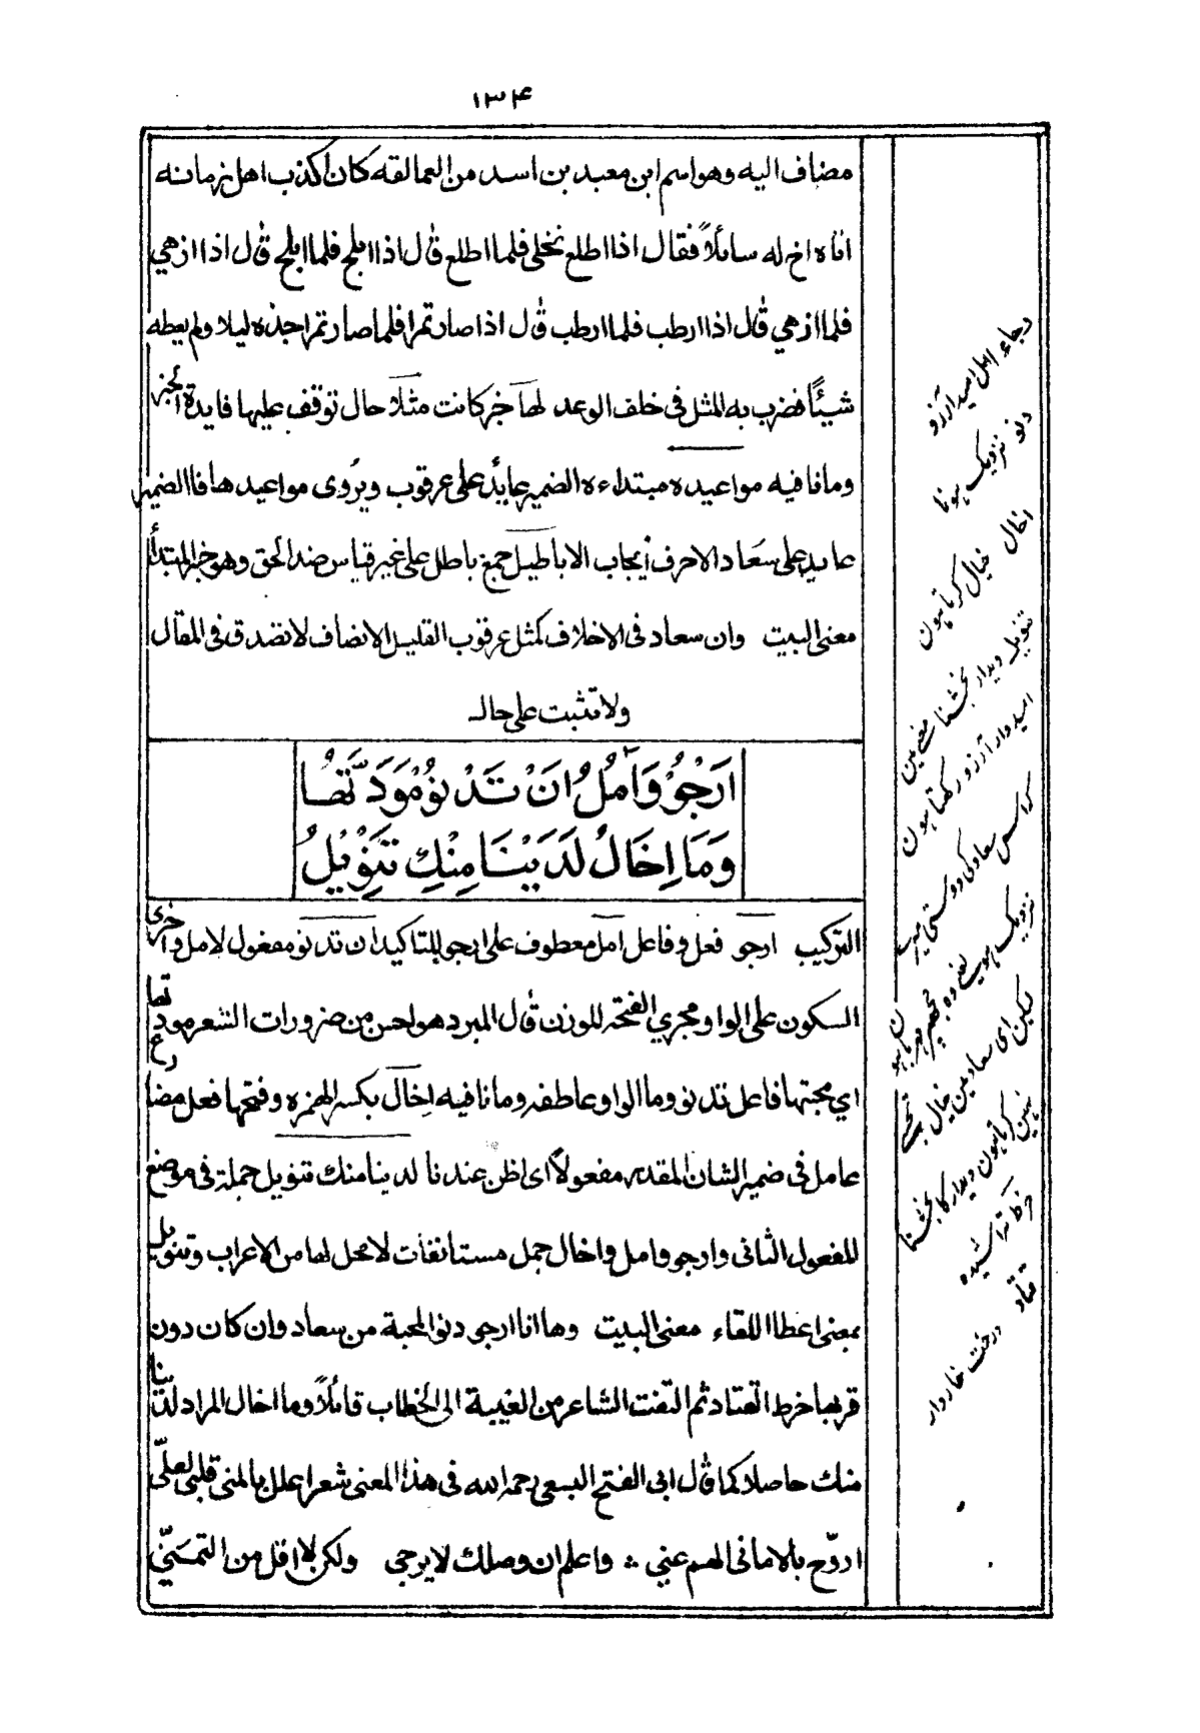 ۱۳۴
مضاف اليه وهو اسم ابن معبد بن اسد من العمالقه كان اكذب اهل زمانه
اتاه اخ له سائلاً فقال اذا اطلع نخلى فلما اطلع قال اذا ابلح فلما ابلح قال اذا ازهي
فلما ازهي قال اذا ارطب فلما ارطب قال اذا صار تمرا فلما صار تمرا جذه ليلا ولم يعطه
شيئًا فضرب به المثل فى خلف الوعد لها خبر كانت مثلا حال توقف عليها فايدة الخبر
وما نافيه مواعيده مبتداءه الضمير عايد على عرقوب ويروى مواعيدها فالضمير
عايد على سعاد الا حرف ايجاب الاباطيل جمع باطل على غير قياس ضد الحق وهو خبر المبتدأ
معنى البيت وان سعاد فى الاخلاف كمثل عرقوب القليل الانصاف لا تصدق فى المقال
ولا تثبت على حال
اَرْجُوْ وَآمُلُ اَنْ تَدْنُوْ مَوَدَّتُهَا
وَمَا اِخَالُ لَدَيْنَا مِنْكِ تَنْوِيْلُ
التركيب ارجو فعل وفاعل آمل معطوف على ارجو للتاكيد ان تدنو مفعول لامل واجرى
السكون على الواو مجري الفتحة للوزن قال المبرد هو احسن من ضرورات الشعر مودتها
اي محبتها فاعل تدنو وما الواو عاطفه وما نافيه اخال بكسر الهمزه وفتحها فعل مضارع
عامل فى ضمير الشان المقدر مفعولاً اى اظن عندنا لدينا منك تنويل جملة فى موضع
المفعول الثانى وارجو وامل واخال جمل مستانفات لا محل لها من الاعراب وتنويل
بمعنى اعطا اللقاء معنى البيت وها انا ارجو دنو المحبة من سعاد وان كان دون
قربها خرط القتاد ثم التفت الشاعر من الغيبة الى الخطاب قائلاً وما اخال المراد لدينا
منك حاصلا كما قال ابى الفتح البستى رحمه الله فى هذا المعنى شعر اعلل بالمنى قلبى لعلّى
اروّح بالامانى الهم عني ؞ واعلم ان وصلك لا يرجى ولكن لا اقل من التمنيّ
رجاء امل اميد آرزو
دنو نزديک ہونا
اخال خيال کرتا ہون
تنويل ديدار بخشنا معنے مين
اميدوار آرزو رکھتا ہون
کہ اس سعاد کی دوستی ميرے
نزديک ہووے
ليکن اى سعاد مين خيال
نہين کرتا ہون ديدار کا بخشنا
خرط تراشيده
قتاد درخت خاردار